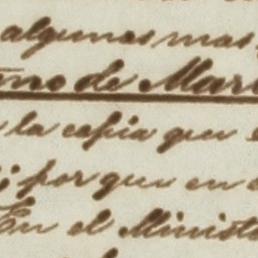 algunas mas
mo de Mar
la copia que
; por que en
En el Minist